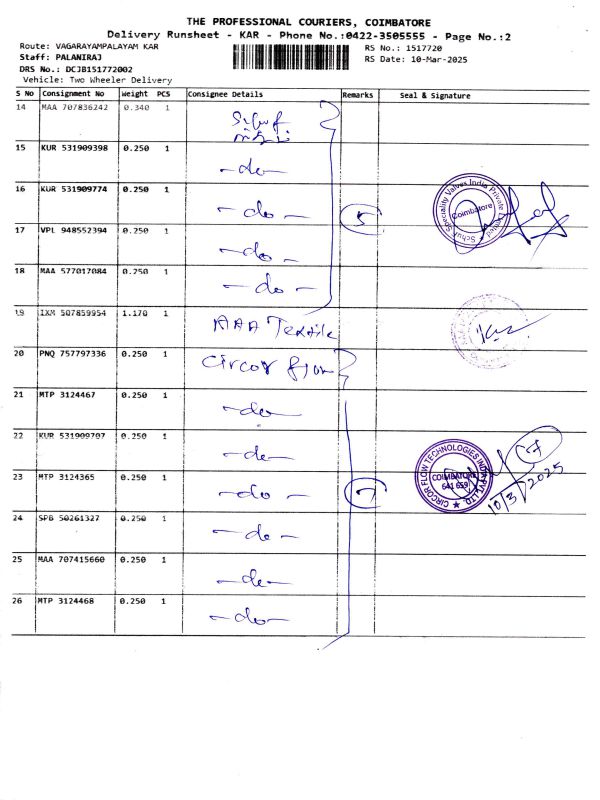 THE PROFESSIONAL COURIERS, COIMBATORE
Delivery Runsheet - KAR - Phone No.:0422-3505555 - Page No.:2
Route: VAGARAYAMPALAYAM KAR
RS No.: 1517720
Staff: PALANIRAJ
RS Date: 10-Mar-2025
DRS No.: DCJB151772002
Vehicle: Two Wheeler Delivery
S No Consignment No Weight PCS Consignee Details Remarks Seal & Signature
14 MAA 707836242 0.340 1
15 KUR 531909398 0.250 1 -do-
16 KUR 531909774 0.250 1 -do- 5
Schuf Speciality Valves India Private Limited
Coimbatore
17 VPL 948552394 0.250 1 -do-
18 MAA 577017084 0.250 1 -do-
19 IXM 507859954 1.170 1 AAA Textile
20 PNQ 757797336 0.250 1 Circor flow
21 MTP 3124467 0.250 1 -do-
22 KUR 531909707 0.250 1 -do-
23 MTP 3124365 0.250 1 -do- 7
CIRCOR FLOW TECHNOLOGIES INDIA PVT. LTD.
COIMBATORE
641 659
10/3/2025
24 SPB 50261327 0.250 1 -do-
25 MAA 707415660 0.250 1 -do-
26 MTP 3124468 0.250 1 -do-